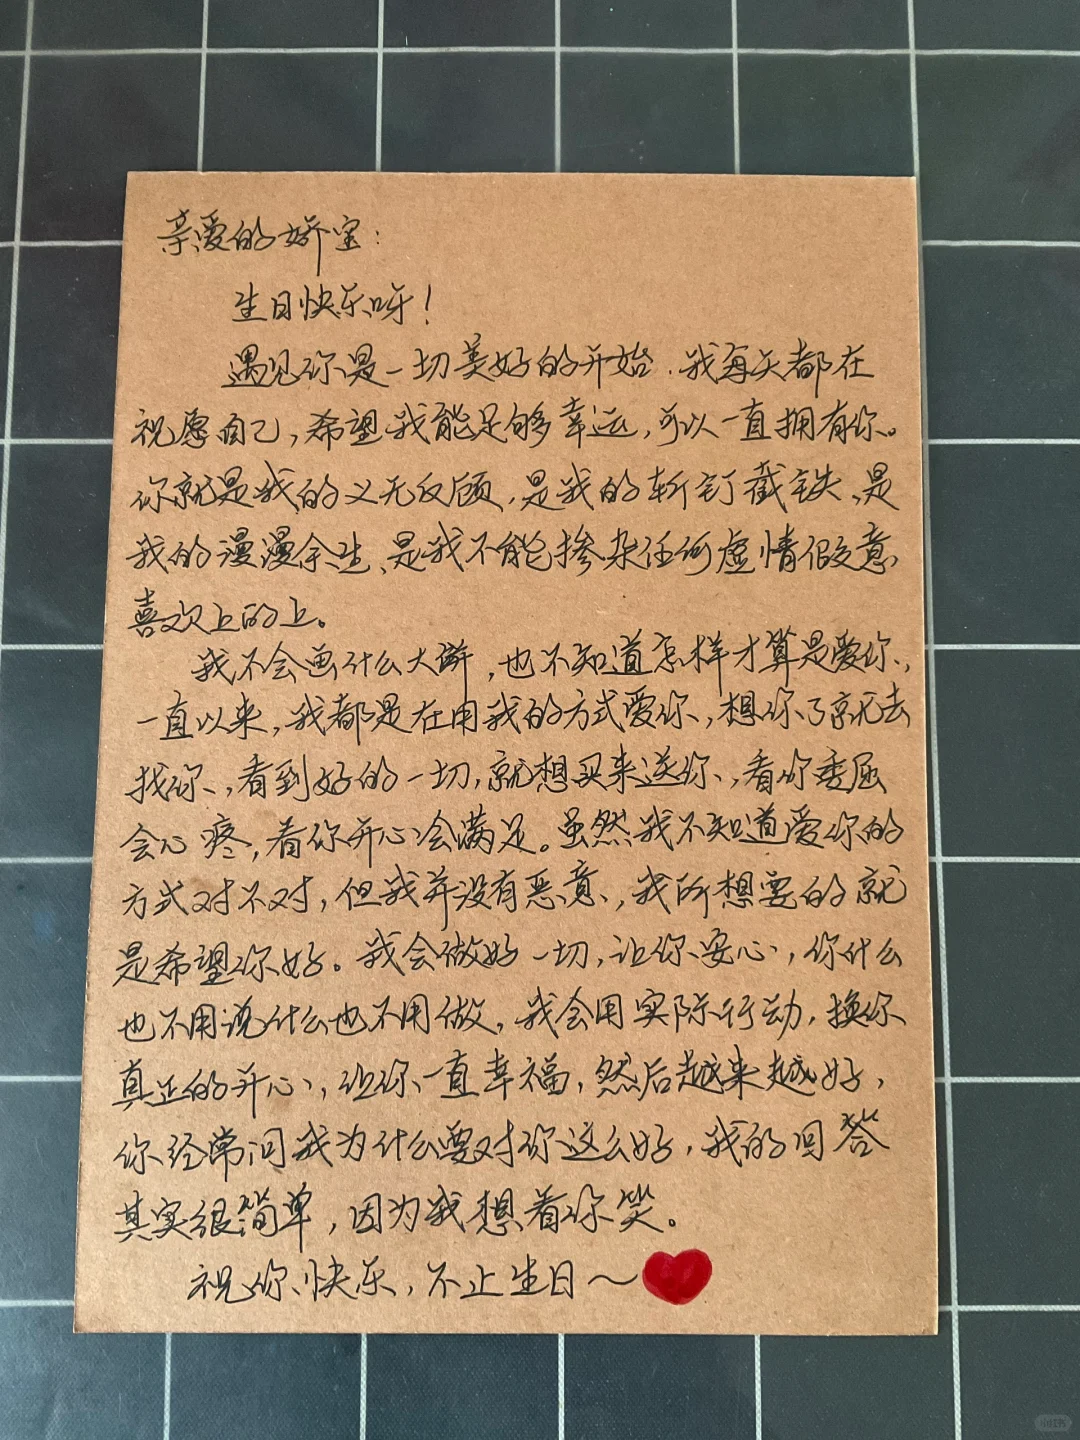 亲爱的娇宝：
生日快乐呀！
遇见你是一切美好的开始．我每天都在
祝愿自己，希望我能足够幸运，可以一直拥有你。
你就是我的义无反顾，是我的斩钉截铁、是
我的漫漫余生、是我不能掺杂任何虚情假意
喜欢上的上。
我不会画什么大饼，也不知道怎样才算是爱你，
一直以来，我都是在用我的方式爱你，想你了就去
找你，看到好的一切，就想买来送你，看你委屈
会心疼，看你开心会满足。虽然我不知道爱你的
方式对不对，但我并没有恶意，我所想要的就
是希望你好。我会做好一切，让你安心，你什么
也不用说什么也不用做，我会用实际行动，换你
真正的开心，让你一直幸福，然后越来越好，
你经常问我为什么要对你这么好，我的回答
其实很简单，因为我想看你笑。
祝你快乐，不止生日～
小红书